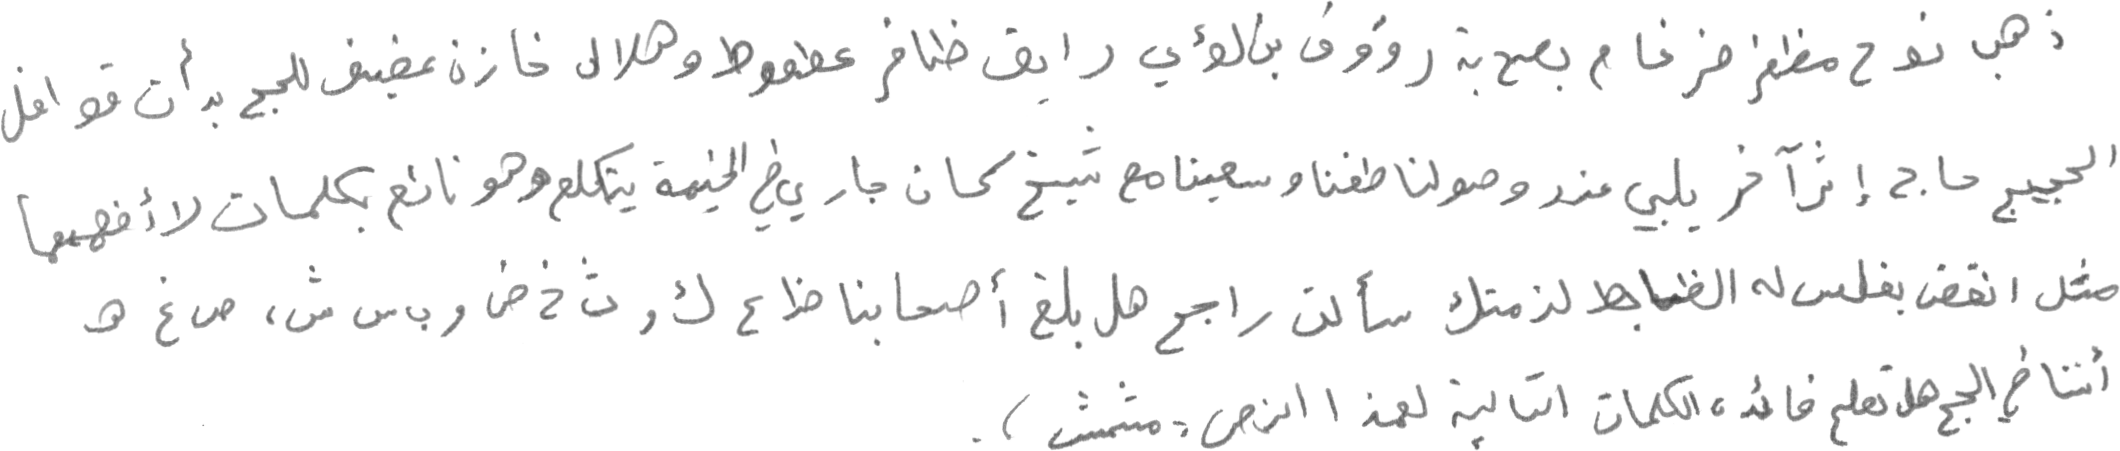 ذهب نوح مظفر ضرغام بصحبة رؤوف بن لؤي رايق ظافر عطعوط وهلال خازن عفيف للحج بدأت قوافل
الحجيج حاج إثر آخر يلبي عند وصولنا طفنا وسعينا مع شيخ كان جاري في الخيمة يتكلم وهو نائم بكلمات لا أفهمها
مثل انقض بفلس له الضابط لذمتك سألت راجح هل بلغ أصحابنا ظ ع ك و ث خ ض و ب س ش، ص غ هـ
أننا في الحج هل تعلم فائدة الكلمات التالية لهذا النص: مشمش).